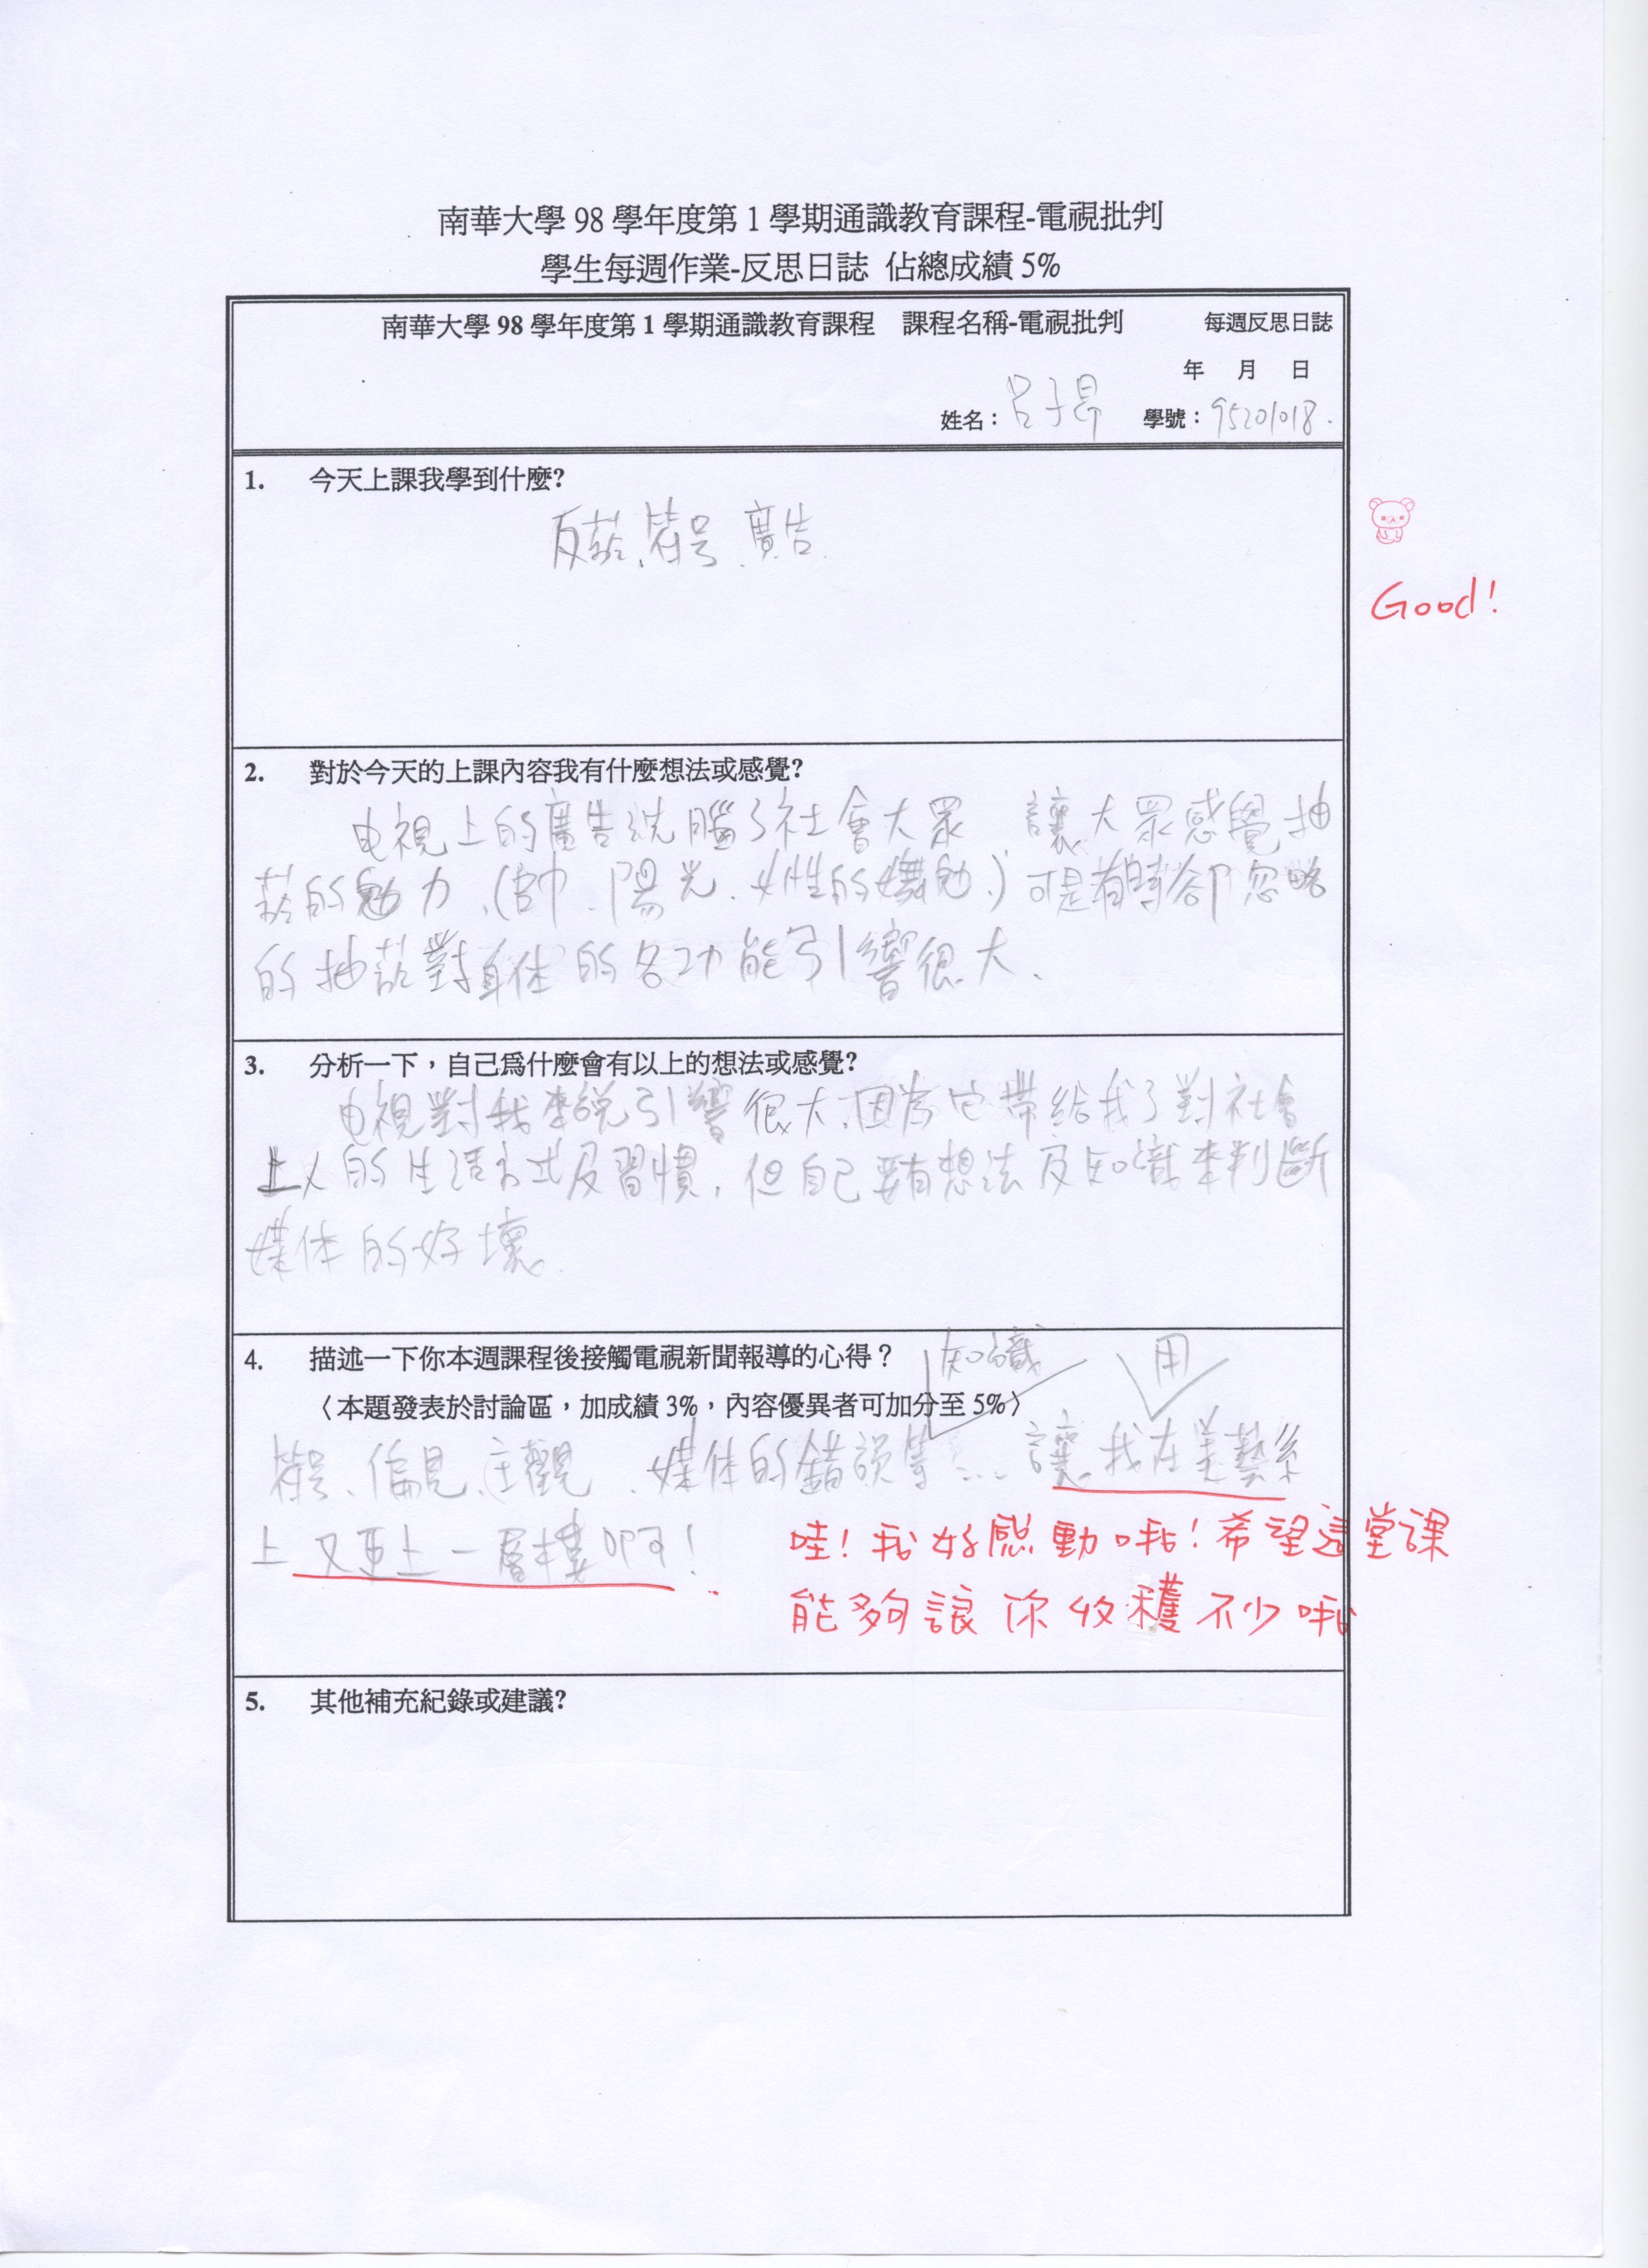 南華大學 98 學年度第 1 學期通識教育課程-電視批判
學生每週作業-反思日誌 佔總成績 5%
南華大學 98 學年度第 1 學期通識教育課程 課程名稱-電視批判 每週反思日誌
年 月 日
姓名：呂子昂 學號：95201018.
1. 今天上課我學到什麼?
反菸、符号、廣告.
Good!
2. 對於今天的上課內容我有什麼想法或感覺?
电視上的廣告洗腦了社會大眾 讓大眾感覺抽
菸的魅力、(帥、陽光、女性的嫵魅、)可是有時卻忽略
的抽菸對身体的各功能引響很大、
3. 分析一下，自己爲什麼會有以上的想法或感覺?
电視對我來說引響很大,因為它帶給我了對社會
上人的生活方式及習慣，但自己要有想法及知識來判斷
媒体的好壞.
4. 描述一下你本週課程後接觸電視新聞報導的心得？
知識 用
〈本題發表於討論區，加成績 3%，內容優異者可加分至 5%〉
符号、偏見、主觀、媒体的錯誤等……讓我在美藝系
上又更上一層樓啊!
哇!我好感動哦!希望這堂課
能夠讓你收穫不少哦
5. 其他補充紀錄或建議?